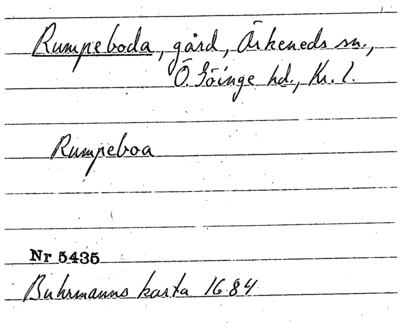 Rumpeboda, gård, Örkeneds sn.,
Ö. Göinge hd., Kr. l.
Rumpeboa
Nr 5435
Buhrmanns karta 1684